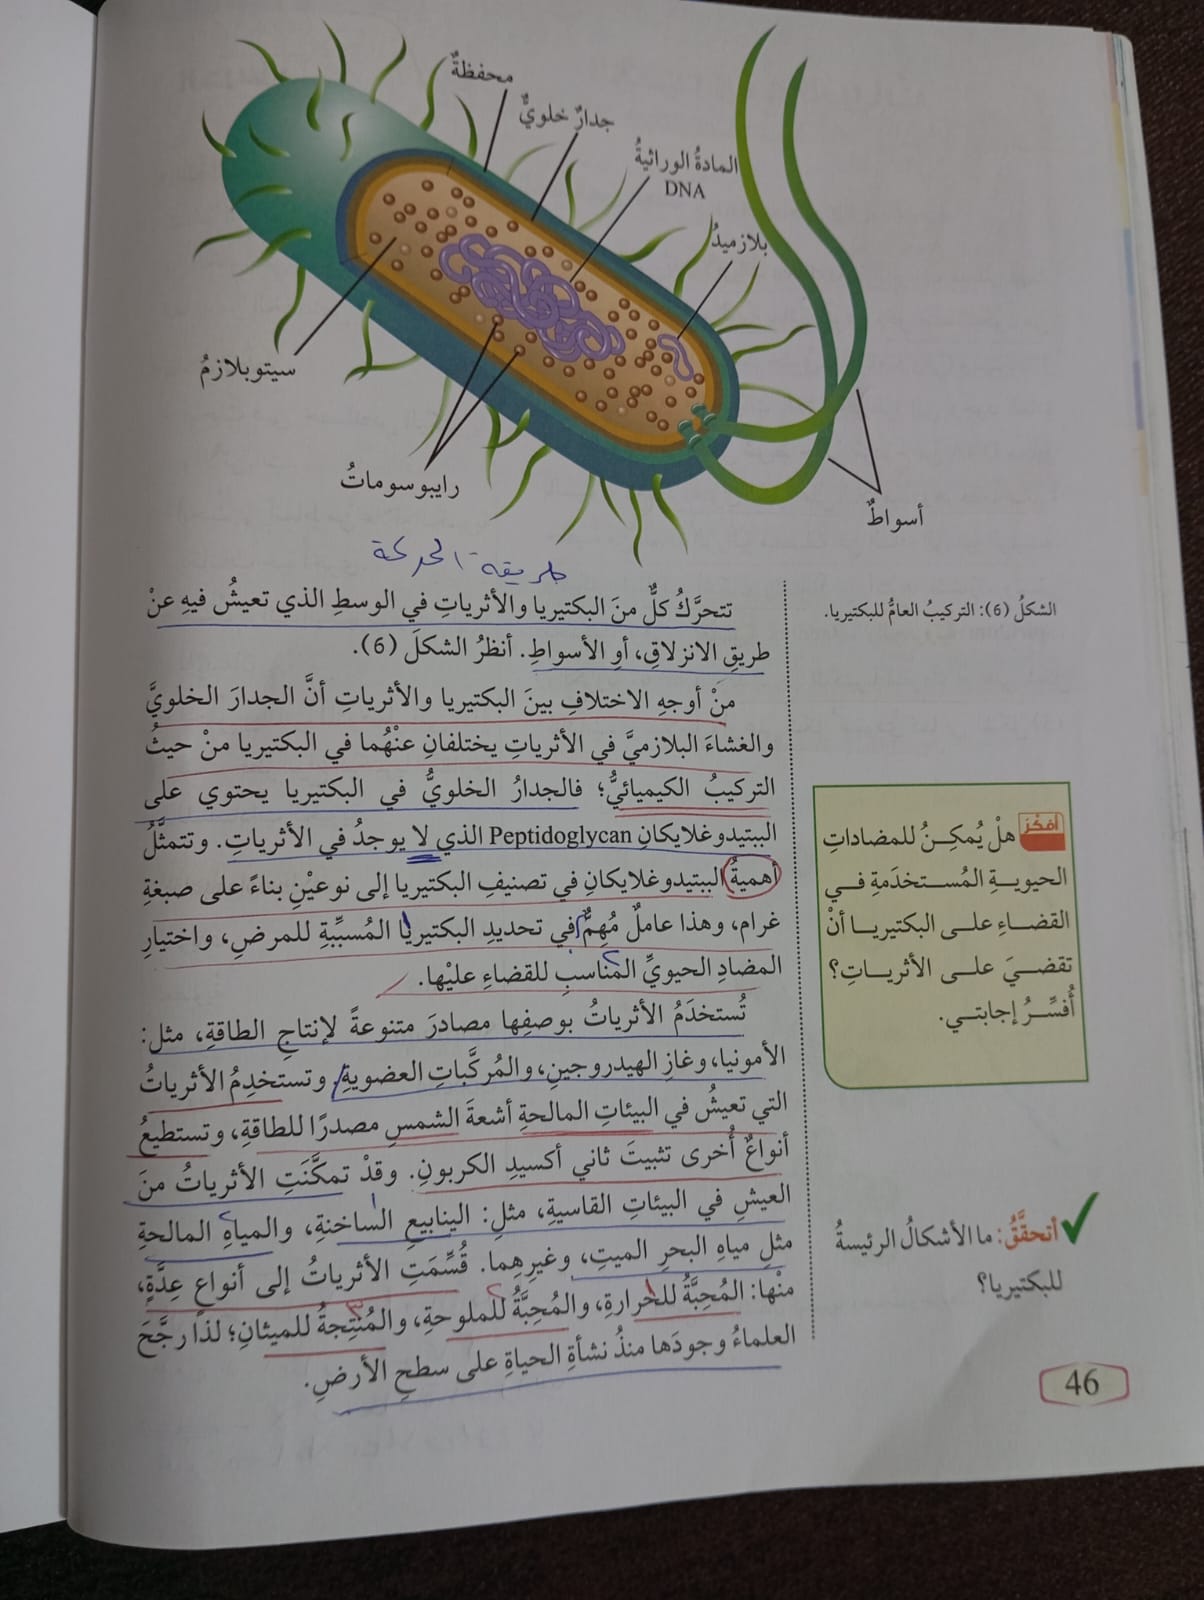 محفظةٌ
جدارٌ خلويٌّ
المادةُ الوراثيةُ
DNA
بلازميدُ
سيتوبلازمُ
رايبوسوماتُ
أسواطٌ
طريقة الحركة
الشكلُ (6): التركيبُ العامُّ للبكتيريا.
تتحرَّكُ كلٌّ منَ البكتيريا والأثرياتِ في الوسطِ الذي تعيشُ فيهِ عنْ
طريقِ الانزلاقِ، أوِ الأسواطِ. أنظرُ الشكلَ (6).
منْ أوجهِ الاختلافِ بينَ البكتيريا والأثرياتِ أنَّ الجدارَ الخلويَّ
والغشاءَ البلازميَّ في الأثرياتِ يختلفانِ عنْهُما في البكتيريا منْ حيثُ
التركيبُ الكيميائيُّ؛ فالجدارُ الخلويُّ في البكتيريا يحتوي على
الببتيدوغلايكانِ Peptidoglycan الذي لا يوجدُ في الأثرياتِ. وتتمثَّلُ
أهميةُ الببتيدوغلايكانِ في تصنيفِ البكتيريا إلى نوعيْنِ بناءً على صبغةِ
غرام، وهذا عاملٌ مُهِمٌّ في تحديدِ البكتيريا المُسبِّبةِ للمرضِ، واختيارِ
المضادِ الحيويِّ المناسبِ للقضاءِ عليْها.
تُستخدَمُ الأثرياتُ بوصفِها مصادرَ متنوعةً لإنتاجِ الطاقةِ، مثل:
الأمونيا، وغازِ الهيدروجينِ، والمُركَّباتِ العضويةِ. وتستخدِمُ الأثرياتُ
التي تعيشُ في البيئاتِ المالحةِ أشعةَ الشمسِ مصدرًا للطاقةِ، وتستطيعُ
أنواعٌ أُخرى تثبيتَ ثاني أكسيدِ الكربونِ. وقدْ تمكَّنَتِ الأثرياتُ منَ
العيشِ في البيئاتِ القاسيةِ، مثلِ: الينابيعِ الساخنةِ، والمياهِ المالحةِ
مثلِ مياهِ البحرِ الميتِ، وغيرِهِما. قُسِّمَتِ الأثرياتُ إلى أنواعٍ عِدَّةٍ،
منْها: المُحِبَّةُ للحرارةِ، والمُحِبَّةُ للملوحةِ، والمُنتِجةُ للميثانِ؛ لذا رجَّحَ
العلماءُ وجودَها منذُ نشأةِ الحياةِ على سطحِ الأرضِ.
أفكِّرُ هلْ يُمكِنُ للمضاداتِ
الحيويةِ المُستخدَمةِ في
القضاءِ على البكتيريا أنْ
تقضيَ على الأثرياتِ؟
أُفسِّرُ إجابتي.
أتحقَّقُ: ما الأشكالُ الرئيسةُ
للبكتيريا؟
46